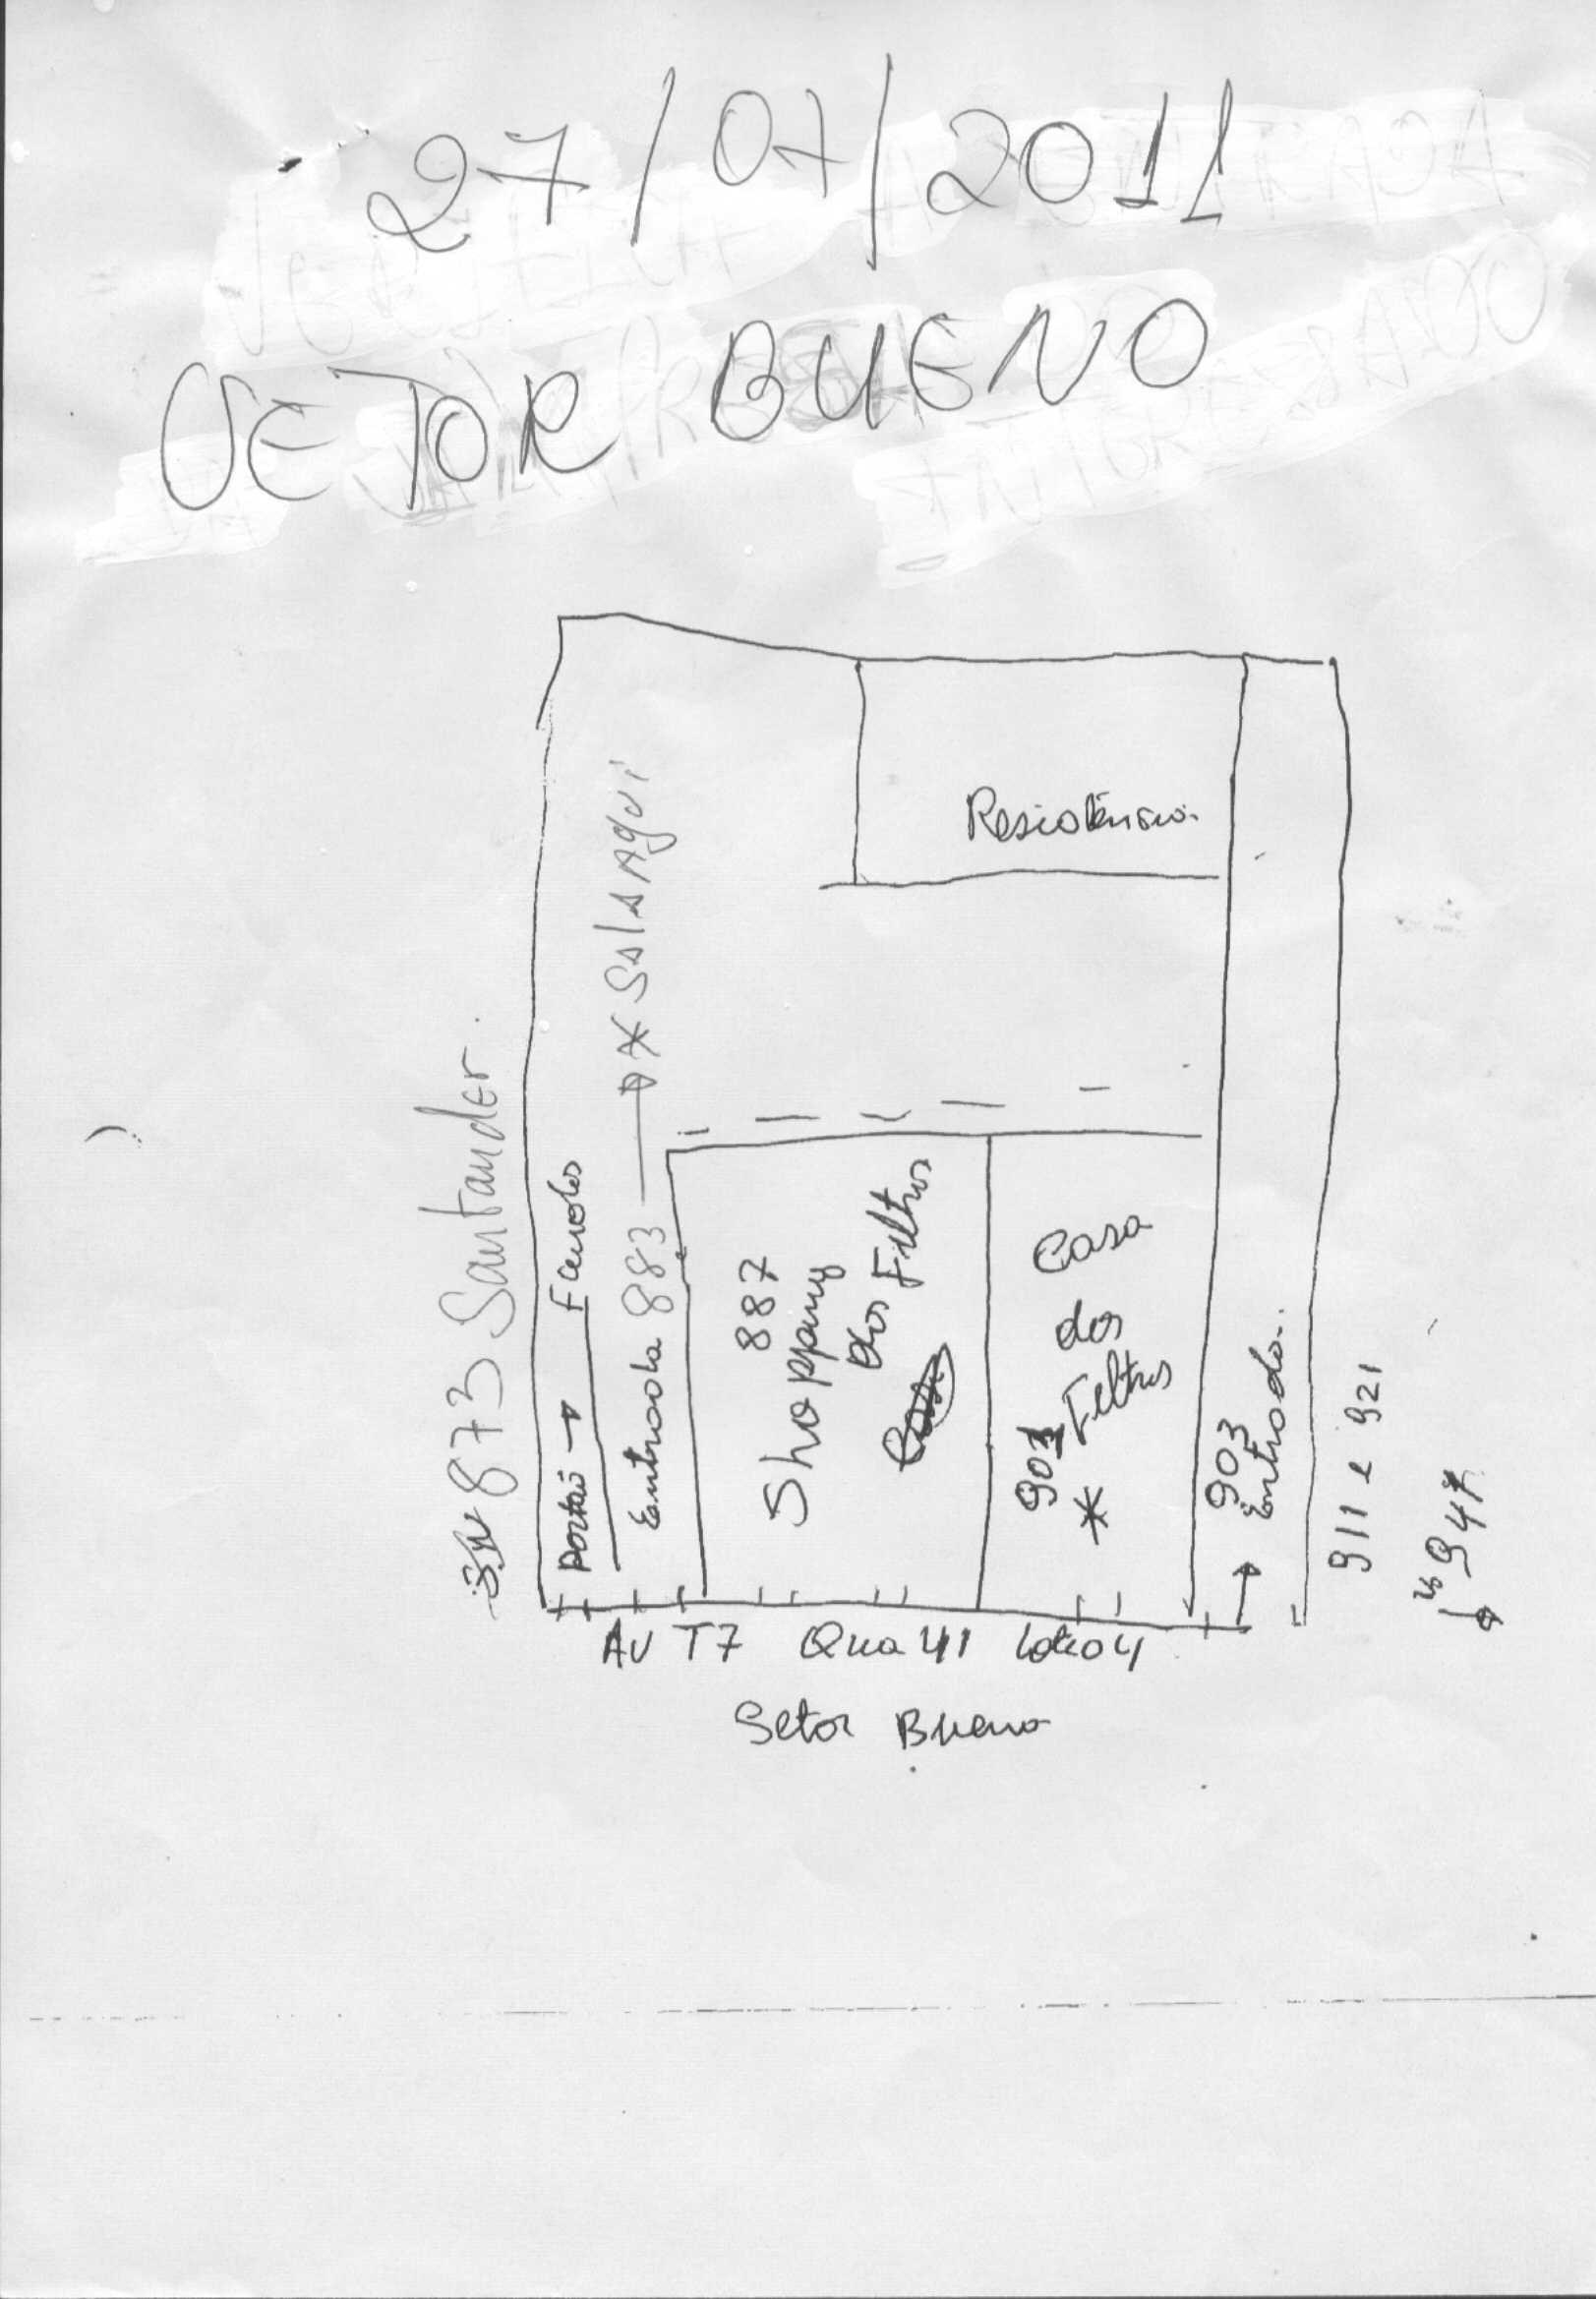 27/07/2011
SETOR BUENO
Residência
* Sala Aqui
873 Santander.
portão →
Entrada 883
887
Shopping
dos Filtros
901
*
Casa
dos
Filtros
903
Entrada.
911 e 921
947
Av T7 Qua 41 Lote 04
Setor Bueno